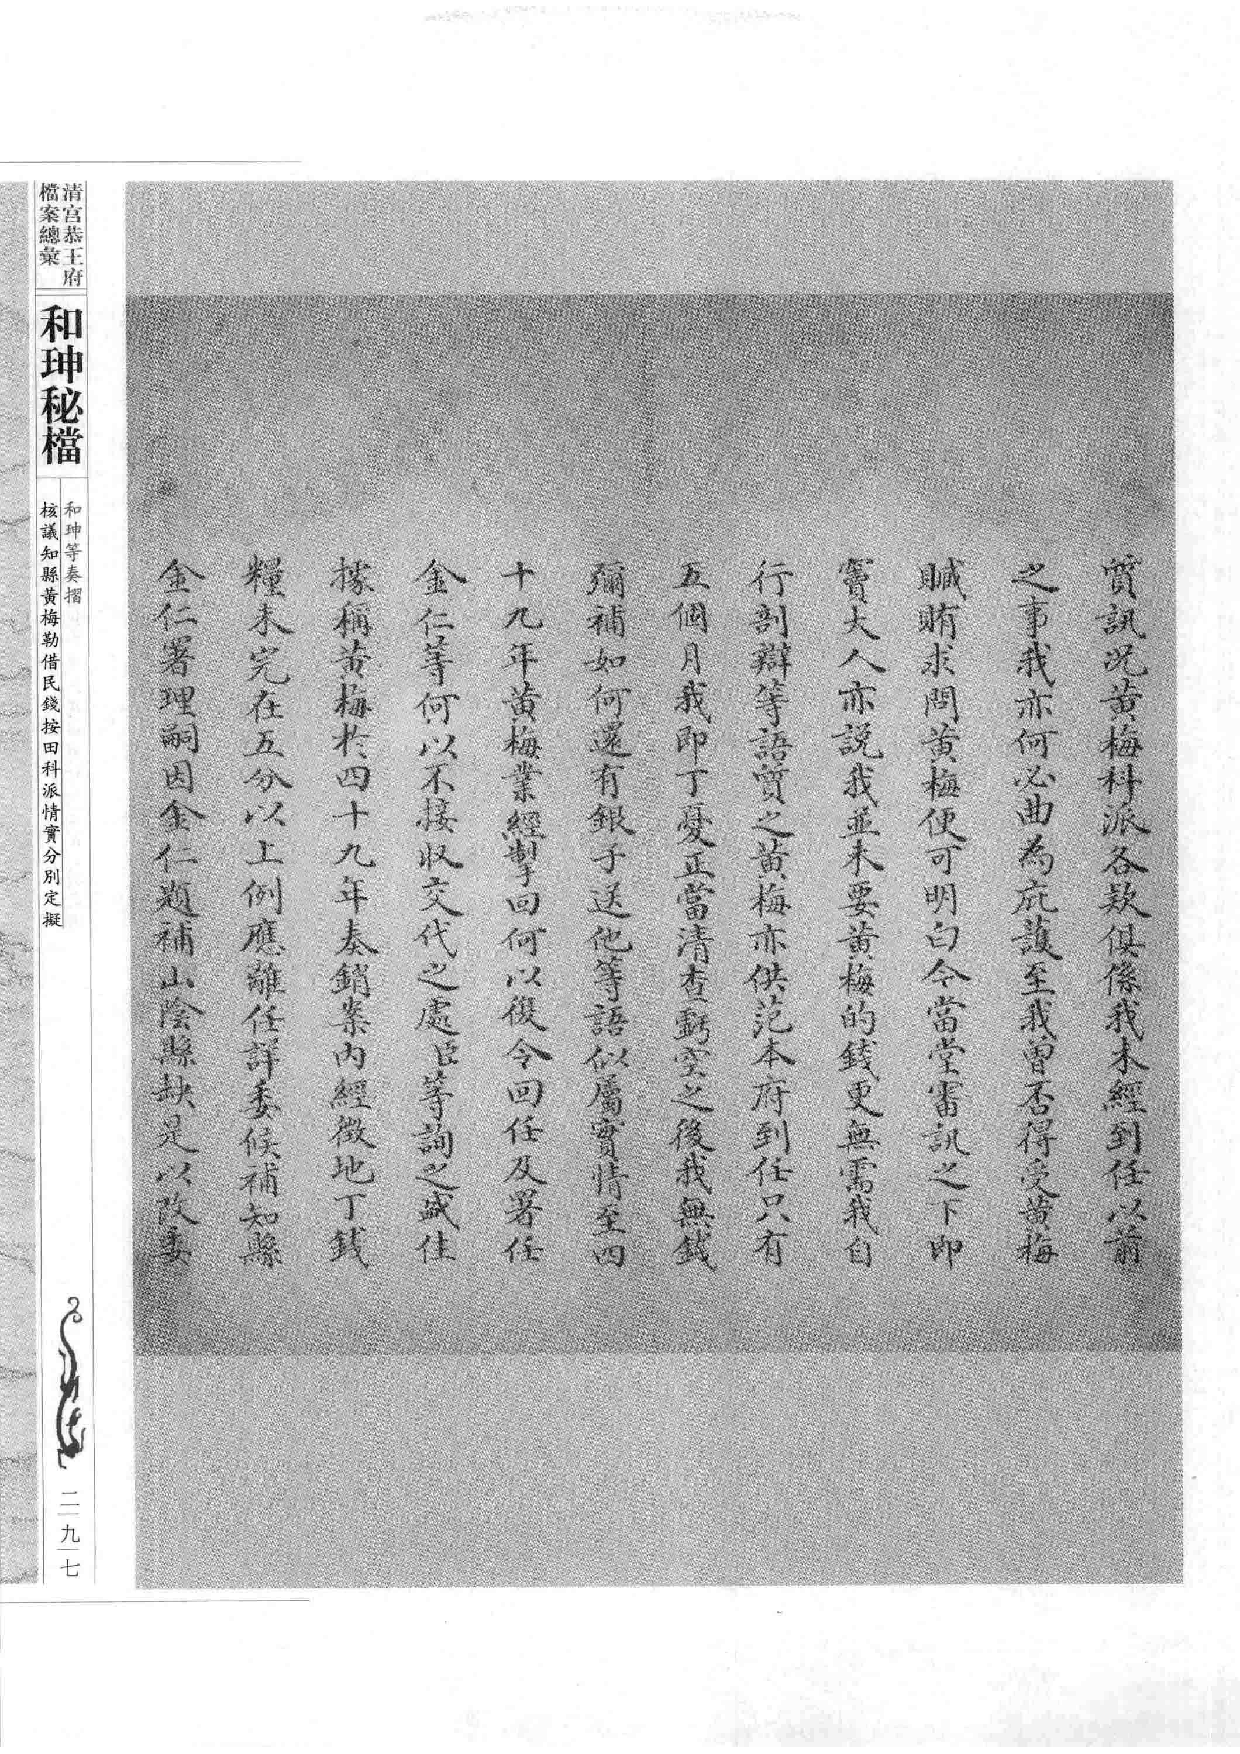 質訊況黃梅科派各款俱係我未經到任以前
之事我亦何必曲為庇護至我曾否得受黃梅
贓賄求問黃梅便可明白今當堂審訊之下即
竇大人亦說我並未要黃梅的錢更無需我自
行剖辯等語質之黃梅亦供范本府到任只有
五個月我即丁憂正當清查虧空之後我無錢
彌補如何還有銀子送他等語似屬實情至四
十九年黃梅業經掣回何以復令回任及署任
金仁等何以不接收交代之處臣等詢之盛住
據稱黃梅於四十九年奏銷案內經徵地丁錢
糧未完在五分以上例應離任詳委候補知縣
金仁署理嗣因金仁題補山陰縣缺是以改委
清宮恭王府
檔案總彙
和珅秘檔
和珅等奏摺
核議知縣黃梅勒借民錢按田科派情實分別定擬
二九七